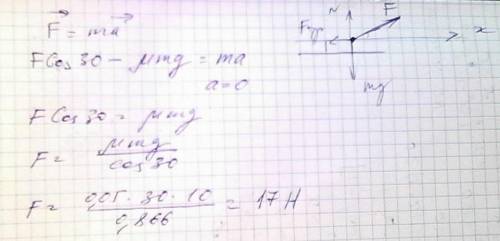 F = ma
FCos30 - μmg = ma
a=0
FCos30 = μmg
F = μmg / cos30
F = 0,05 · 30 · 10 / 0,866 = 17 Н
N
F
Fтр
x
mg